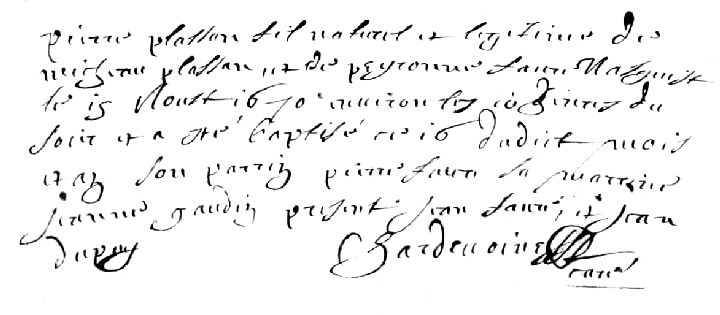 pierre plassan fil naturel et legitime de
micheau plassan, et de peyronne faure Nasquist
le 15 Aoust 1670 environ les dix heures du
soir et a esté baptisé ce 16 dudict mois
et an son parrin pierre faure sa marrine
jeanne gaudin present jean faure, et jean
dupuy Chardevoine curé